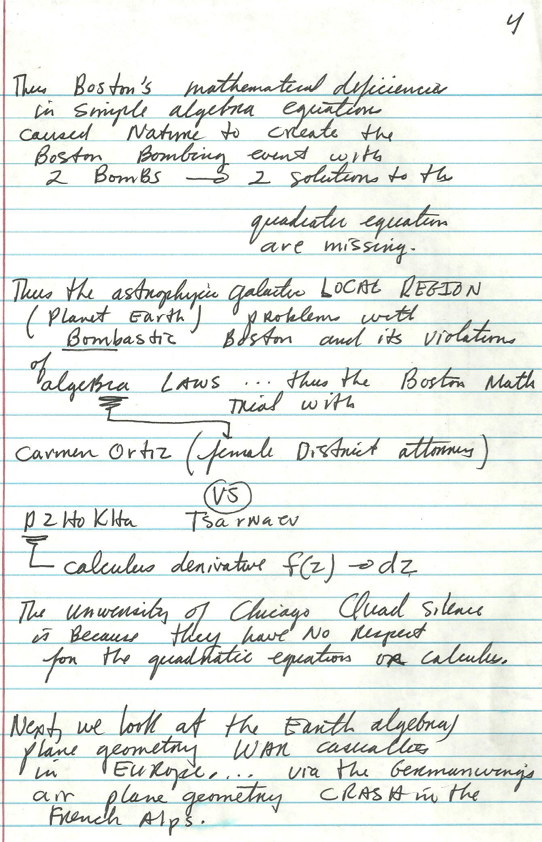 4
Thus Boston's mathematical deficiencies
in simple algebra equation
caused Nature to create the
Boston Bombing event with
2 BomBs → 2 solutions to the
quadratic equation
are missing.
Thus the astrophysic galactic LOCAL REGION
(Planet Earth) problems with
Bombastic Boston and its violations
of
algebra LAWS ... thus the Boston Math
Trial with
Carmen Ortiz (female District attorney)
VS
DzHoKHa Tsarnaev
calculus derivative f(z) → dz
The University of Chicago Quad silence
is Because they have No Respect
for the quadratic equation OR calculus.
Next, we look at the Earth algebra/
plane geometry WAR casualties
in EURope,... via the Germanwings
air plane geometry CRASH in the
French Alps.